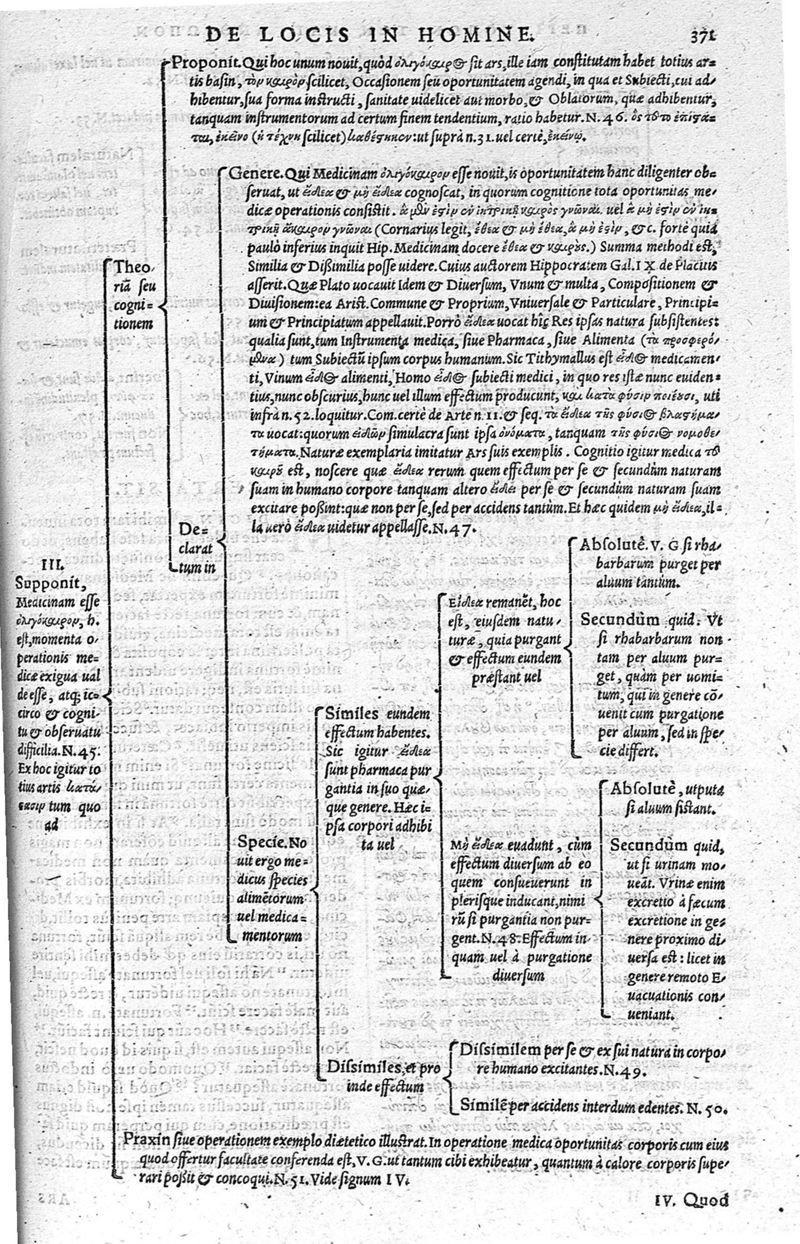 DE LOCIS IN HOMINE. 371
Proponit. Qui hoc unum nouit, quòd ὀλιγόκαιρος sit ars, ille iam constitutam habet totius ar-
tis basin, τὸν καιρὸν scilicet, Occasionem seu oportunitatem agendi, in qua et Subiecti, cui ad-
hibentur, sua forma instructi, sanitate uidelicet aut morbo, & Oblatorum, quæ adhibentur,
tanquam instrumentorum ad certum finem tendentium, ratio habetur. N. 46. ὃς τοῦτο ἐπίστα-
ται, ἐκείνο (ἡ τέχνη scilicet) καθέστηκεν: ut suprà n. 31. uel certè, ἐκείνῳ.
Genere. Qui Medicinam ὀλιγόκαιρον esse nouit, is oportunitatem hanc diligenter ob-
seruat, ut εἴδεα & μὴ εἴδεα cognoscat, in quorum cognitione tota oportunitas me-
dicæ operationis consistit.
(Cornarius legit, &c. forte quia
paulò inferius inquit Hip. Medicinam docere) Summa methodi est,
Similia & Dißimilia posse uidere. Cuius auctorem Hippocratem Gal. IX de Placitis
asserit. Quæ Plato uocauit Idem & Diuersum, Vnum & multa, Compositionem &
Diuisionem: ea Arist. Commune & Proprium, Vniuersale & Particulare, Principi-
um & Principiatum appellauit. Porrò εἴδεα uocat hic Res ipsas natura subsistentes:
qualia sunt, tum Instrumenta medica, siue Pharmaca, siue Alimenta (τὰ προσφερό-
μενα) tum Subiectũ ipsum corpus humanum. Sic Tithymallus est εἶδος medicamen-
ti, Vinum εἶδος alimenti, Homo εἶδος subiecti medici, in quo res istæ nunc euiden-
tius, nunc obscurius, hunc uel illum effectum producunt, καὶ κατὰ φύσιν ποιέουσι, uti
infrà n. 52. loquitur. Com. certè de Arte n. 11. & seq. τὰ εἴδεα τῆς φύσιος βλαστήμα-
τα uocat: quorum εἰδῶν simulacra sunt ipsa ὀνόματα, tanquam τῆς φύσιος νομοθε-
τήματα. Naturæ exemplaria imitatur Ars suis exemplis. Cognitio igitur medica τοῦ
καιροῦ est, noscere quæ εἴδεα rerum quem effectum per se & secundùm naturam
suam in humano corpore tanquam altero εἴδει per se & secundùm naturam suam
excitare poßint: quæ non per se, sed per accidens tantùm. Et hæc quidem μὴ εἴδεα, il-
la uerò εἴδεα uidetur appellasse. N. 47.
Theo-
riã seu
cogni-
tionem
De-
clarat
tum in
III.
Supponit,
Medicinam esse
ὀλιγόκαιρον, h.
est, momenta o-
perationis me-
dicæ exigua ual
de esse, atq; ic-
circo & cogni-
tu & obseruatu
difficilia. N. 45.
Ex hoc igitur to
tius artis κατά-
στασιν tum quo
ad
Specie. No
uit ergo me-
dicus species
alimẽtorum
uel medica-
mentorum
Similes eundem
effectum habentes.
Sic igitur εἴδεα
sunt pharmaca pur
gantia in suo quæ-
que genere. Hæc i-
psa corpori adhibi
ta uel
Εἴδεα remanẽt, hoc
est, eiusdem natu-
turæ, quia purgant
& effectum eundem
præstant uel
Absolutè. V. G si rha-
barbarum purget per
aluum tantùm.
Secundùm quid. Vt
si rhabarbarum non
tam per aluum pur-
get, quàm per uomi-
tum, qui in genere cõ-
uenit cum purgatione
per aluum, sed in spe-
cie differt.
Μὴ εἴδεα euadunt, cùm
effectum diuersum ab eo
quem consueuerunt in
plerisque inducant, nimi
rũ si purgantia non pur-
gent. N. 48. Effectum in-
quam uel à purgatione
diuersum
Absolutè, utputa
si aluum sistant.
Secundùm quid,
ut si urinam mo-
ueãt. Vrinæ enim
excretio à fæcum
excretione in ge-
nere proximo di-
uersa est: licet in
genere remoto E-
uacuationis con-
ueniant.
Dissimiles, et pro
inde effectum
Dissimilem per se & ex sui natura in corpo-
re humano excitantes. N. 49.
Similẽ per accidens interdum edentes. N. 50.
Praxin siue operationem exemplo diætetico illustrat. In operatione medica oportunitas corporis cum eius
quod offertur facultate conferenda est, V. G. ut tantum cibi exhibeatur, quantum à calore corporis supe-
rari poßit & concoqui. N. 51. Vide signum IV.
IV. Quod